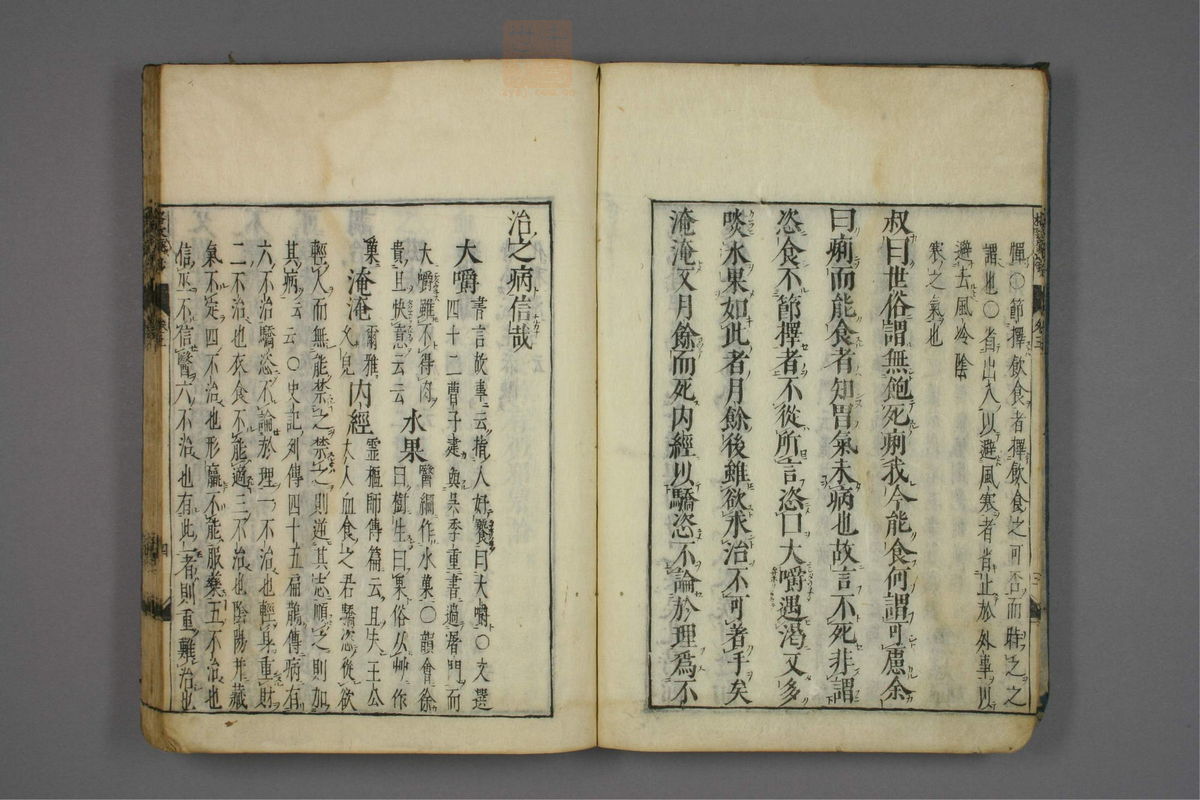 憚○節擇飲食者擇飲食之可否而
謂也○省出入以避風寒者省止於外事以
避去風冷陰
寒之氣也
叔曰世俗謂無飽死痢我今能食何謂可慮余
曰痢而能食者知胃氣未病也故言不死非謂
恣食不節擇者不從所言恣口大嚼遇渴又多
啖水果如此者月餘後雖欲求治不可著手矣
淹淹又月餘而死内經以驕恣不論於理為不
治之病信哉
大嚼 書言故事云指人好饕曰大嚼○文選
四十二曹子建與吳季重書過屠門而
大嚼雖不得肉
貴且快意云云 水果 醫綱作水菓○韻會徐
曰樹生曰果俗从艸作
菓 淹淹 爾雅
久也 内經 靈樞師傳篇云且夫王公
大人血食之君驕恣從欲
輕人而無能禁之禁之則逆其志順之則加
其病云云○史記列傳四十五扁鵲傳病有
六不治驕恣不論於理一不治也輕身重財
二不治也衣食不能適三不治也陰陽并藏
氣不定四不治也形羸不能服藥五不治也
信巫不信醫六不治也有此一者則重難治也
四